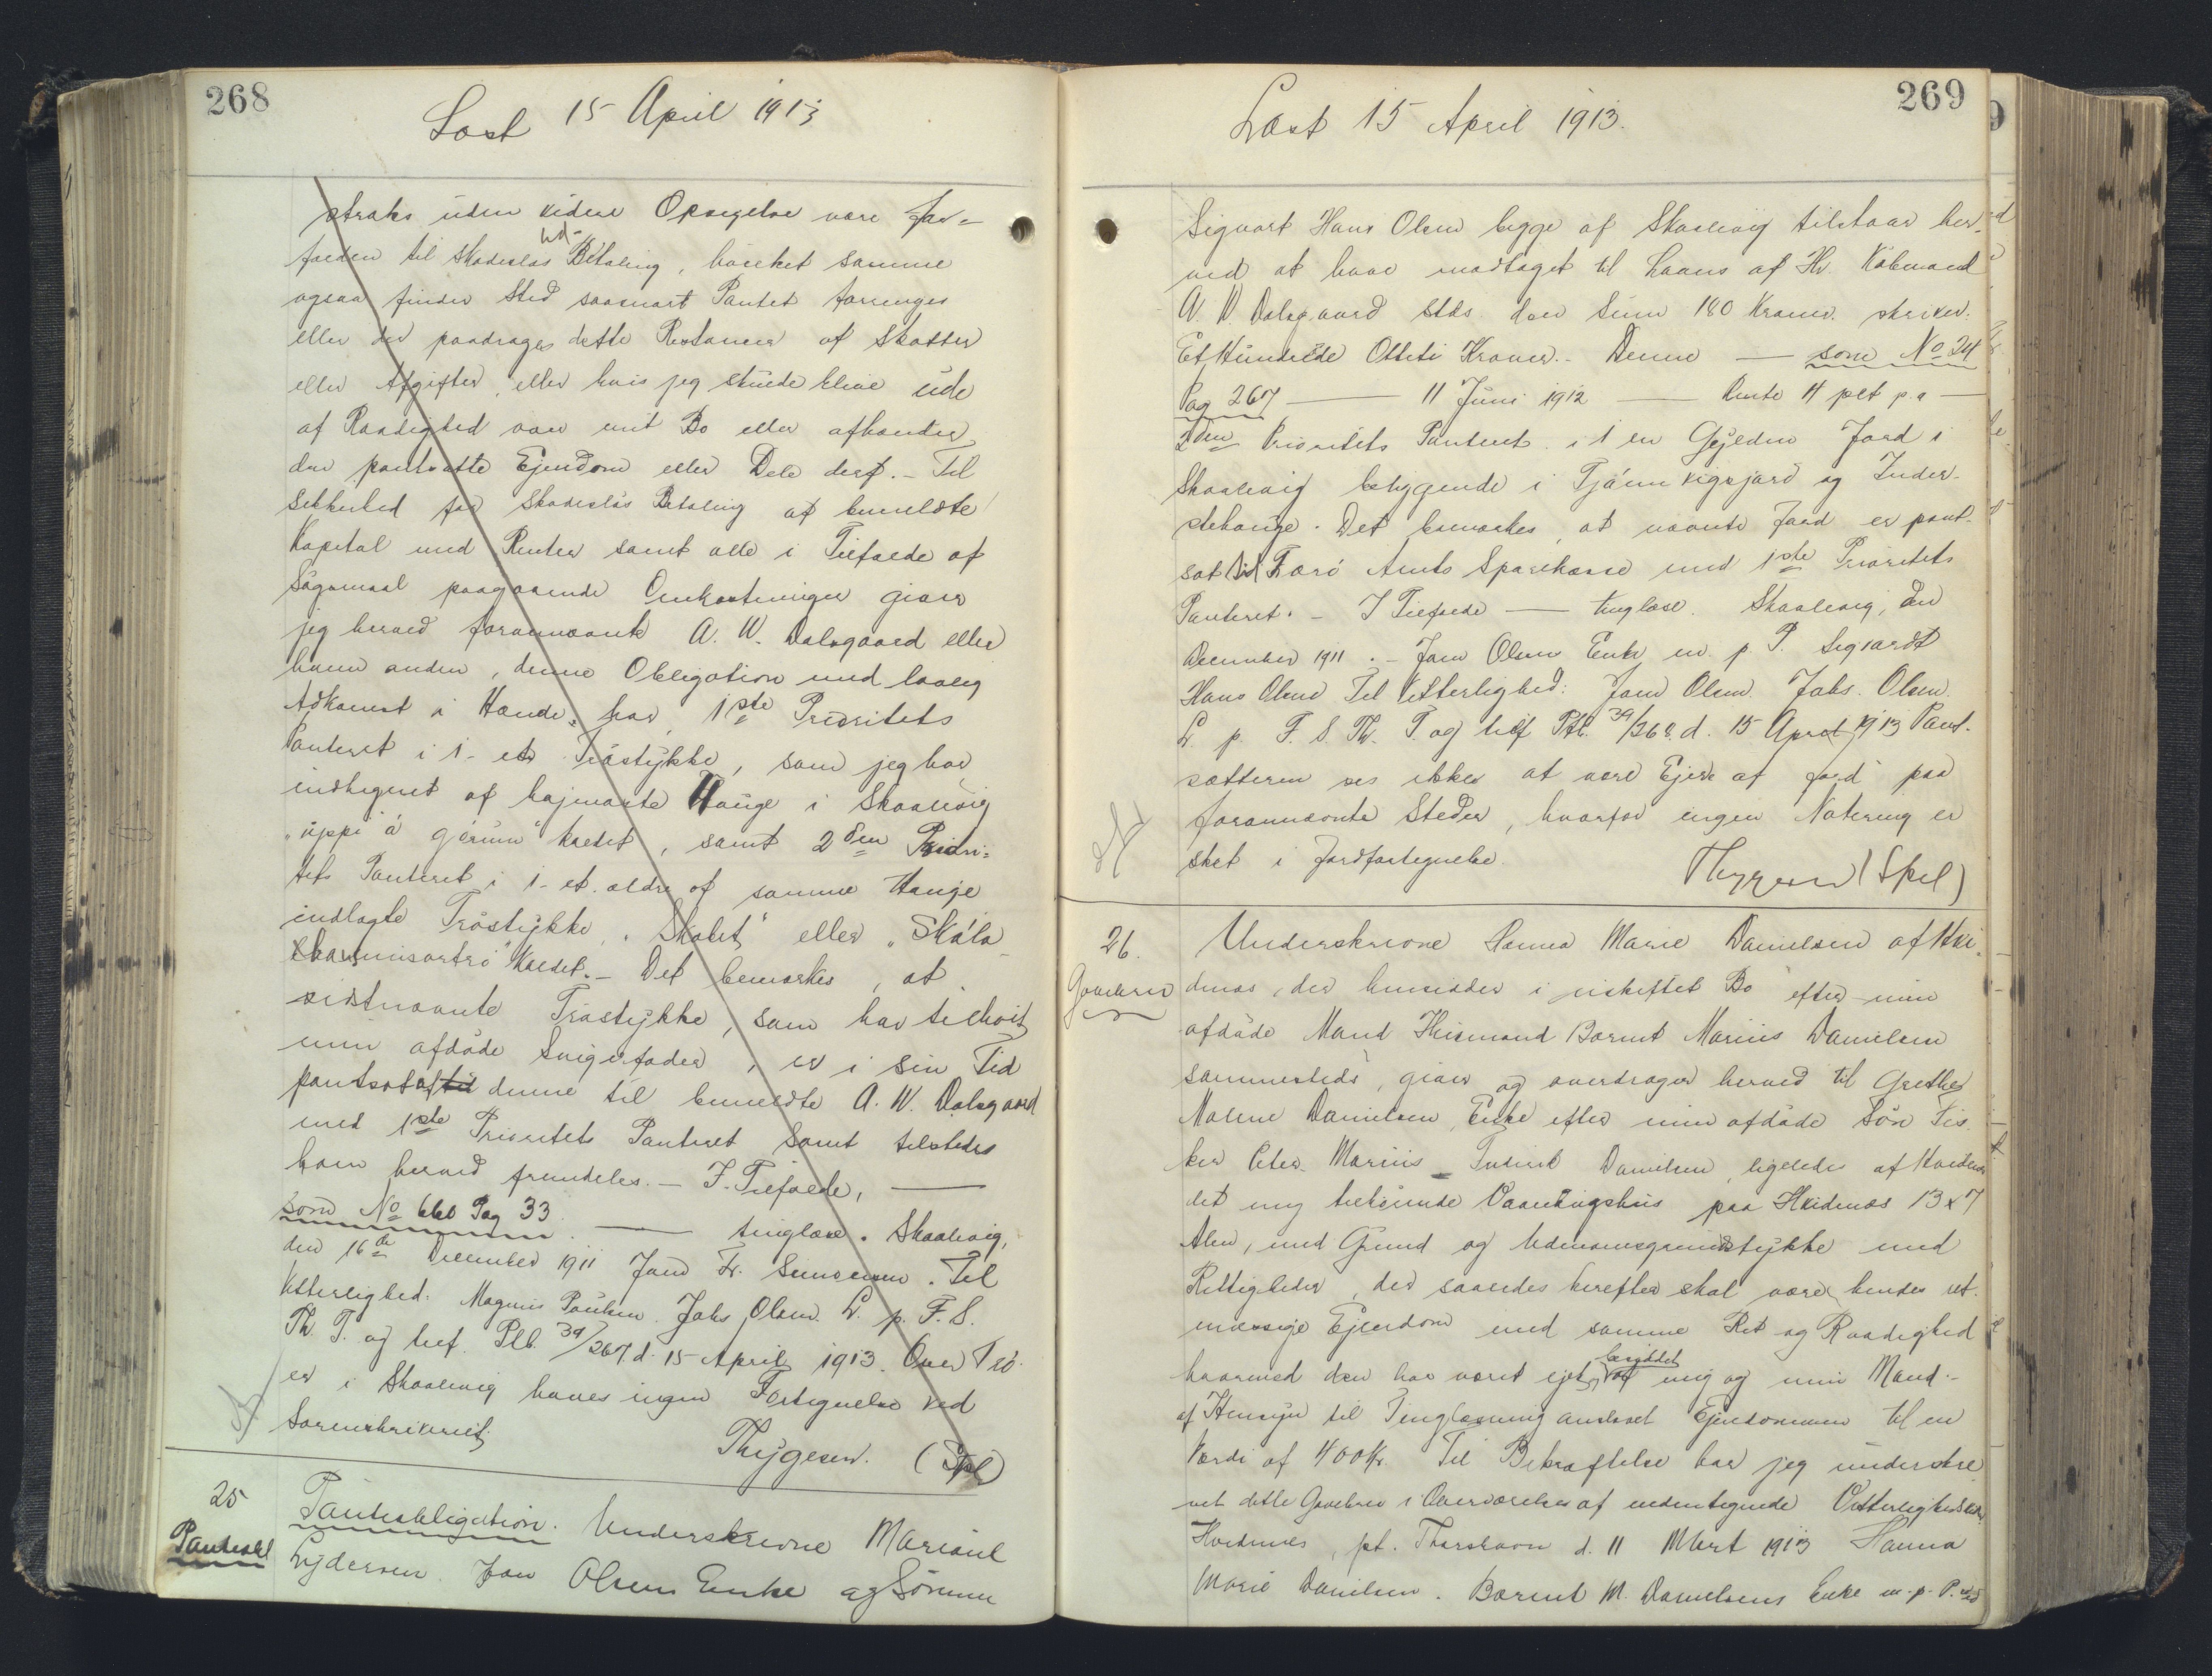 268
Læst 15 April 1913
straks uden videre Opsigelse være for-
falden til skadesløs Ud-Betaling, hvilket samme
ogsaa finder Sted saasnart Pantet forringes
eller der paadrages dette Restancer af Skatter
eller Afgifter, eller hvis jeg skulde blive ude
af Raadighed over mit Bo eller afhænder
den pantsatte Ejendom eller Dele deraf. - Til
Sikkerhed for skadesløs Betaling af bemeldte
Kapital med Renter samt alle i Tilfælde af
Søgsmaal paagaaende Omkostninger giver
jeg herved forannævnte A. W. Dalsgaard eller
hvem anden, denne Obligation med lovlig
Adkomst i Hænde har, 1ste Prioritets
Panteret i 1- et Trøstykke, som jeg har
indhegnet af højnævnte Hauge i Skaalevig
"uppi á gørum" kaldet, samt 2den Priori-
tets Panteret i 1- et ældre af samme Hauge
indlagte Trøstykke, "Skalet" eller "Skála
kaldet. - Det bemærkes, at
sidstnævnte Trøstykke, som har tilhørt
min afdøde Svigerfader, er i sin Tid
pantsat af denne til bemeldte A. W. Dalsgaard
med 1ste Prioritets Panteret samt tilstedes
ham herved fremdeles. - I Tilfælde, —
som No 660 Pag 33. — tinglæse. Skaalevig,
den 16de December 1911 Joen Fr. Simonsen. Til
Vitterlighed: Magnus Poulsen. Johs Olsen. L. p. F. S.
Th. T. og tilf. Ptb. 39/267. d. 15 April 1913. Over Trø
er i Skaalevig haves ingen Fortegnelse ved
Sorenskriveriet.
Thygesen. (Spl)
25
Panteobl
Panteobligation. Underskrevne Mariane
Lydersen Joen Olsens Enke og Sønnen
269
Læst 15 April 1913.
Sigvart Hans Olsen begge af Skaalevig tilstaar her-
ved at have modtaget til Laans af Hr. Købmand
A. W. Dalsgaard stds. den Sum 180 Kroner skriver:
Et Hundrede Otteti Kroner. - Denne — som No 24
Pag 267 — 11 Juni 1912 — Rente 4 pct p.a —
2den Prioritets Panteret i 1 en Gylden Jord i
Skaalevig beliggende i og Inder-
stehauge. Det bemærkes, at nævnte Jord er pant-
sat til Færø Amts Sparekasse med 1ste Prioritets
Panteret. - I Tilfælde — tinglæse. Skaalevig, den
December 1911. - Joen Olsens Enke m. p. P. Sigvardt
Hans Olsen Til Vitterlighed: Joen Olsen. Johs. Olsen.
L. p. F. S. Th. T. og tilf Ptb. 39/268. d. 15 April 1913 Pant-
sætteren ses ikke at være Ejer af Jord paa
forannævnte Steder, hvorfor ingen Notering er
sket i Jordfortegnelse.
Thygesen (Spl)
26.
Gavebrev
Underskrevne Hanna Marie Danielsen af Hvi-
denæs, der hensidder i uskiftet Bo efter min
afdøde Mand Husmand Barent Marius Danielsen
sammesteds, giver og overdrager herved til Grethe
Malene Danielsen, Enke efter min afdøde Søn Fis-
ker Peter Marius Danielsen, ligeledes af Hvidenæs
det mig tilhørende Vaaningshus paa Hvidenæs 13 x 7
Alen, med Grund og Udenomsgrundstykke med
Rettigheder, der saaledes herefter skal være hendes ret-
mæssige Ejendom med samme Ret og Raadighed
hvormed den har været ejet, besiddet af mig og min Mand. -
af Hensyn til Tinglæsning anslaaet Ejendommen til en
Værdi af 400 Kr. Til Bekræftelse har jeg underskre
vet dette Gavebrev i Overværelse af undertegnede Vitterlighedsvidner
Hvidenæs, pt. Thorshavn d. 11 Marts 1913 Hanna
Marie Danielsen. Barent M. Danielsens Enke m. p. P.